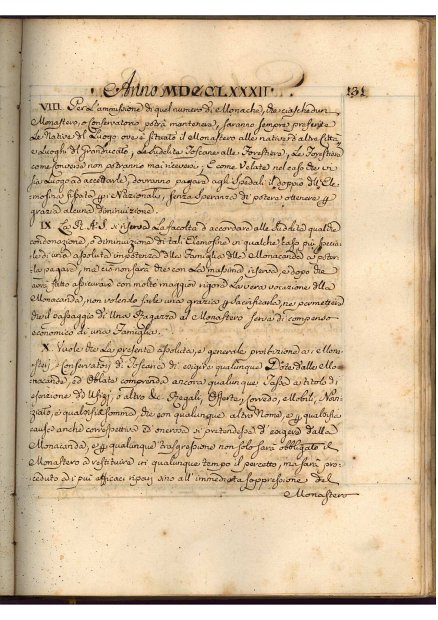 Anno MDCCLXXXII
131
VIII. Per l'ammissione di quel numero di Monache, che ciaschedun
Monastero, o Conservatorio potrà mantenere, saranno sempre preferite
le Native del Luogo ove è situato il Monastero alle native d'altre Città,
e Luoghi del Granducato, le Suddite Toscane alle Forestiere, le Forestiere
come Converse non potranno mai riceversi. E come Velate nel caso che vi
sia luogo ad accettarle, dovranno pagare agli Spedali il doppio dell' Ele-
mosina fissata per le Nazionali, senza speranza di potere ottenere per
grazia alcuna diminuzione.
IX. La R. A. S. si riserva la facoltà d'accordare alle Suddite qualche
condonazione, o diminuzione di tali Elemosine in qualche caso più specia-
le di una assoluta impotenza della Famiglia della Monacanda a poter-
la pagare, ma ciò non sarà che con la massima riserva, e dopo che
avrà fatto assicurare con molto maggior rigore la vera vocazione della
Monacanda, non volendo farle una grazia per sacrificarla, ne permettere
che il passaggio di una Ragazza al Monastero serva di compenso
economico di una Famiglia.
X. Vuole che la presente assoluta, e generale proibizione ai Mona-
sterj e Conservatorj di Toscana di esigere qualunque Dote dalle Mo-
nacande, ed Oblate comprenda ancora qualunque Tassa a titolo di
esenzione da Ufizj, o altro &c. Regali, Offerte, Corredo, Mobili, Non-
ziato, e qualsisia somma che con qualunque altro Nome, e per qualsisia
causa anche correspettiva ed onerosa si pretendesse d'esigere dalla
Monacanda, e per qualunque trasgressione non solo sarà obbligato il
Monastero a restituire in qualunque tempo il percetto, ma sarà pro-
ceduto ai più efficaci ripari sino all' immediata soppressione del
Monastero